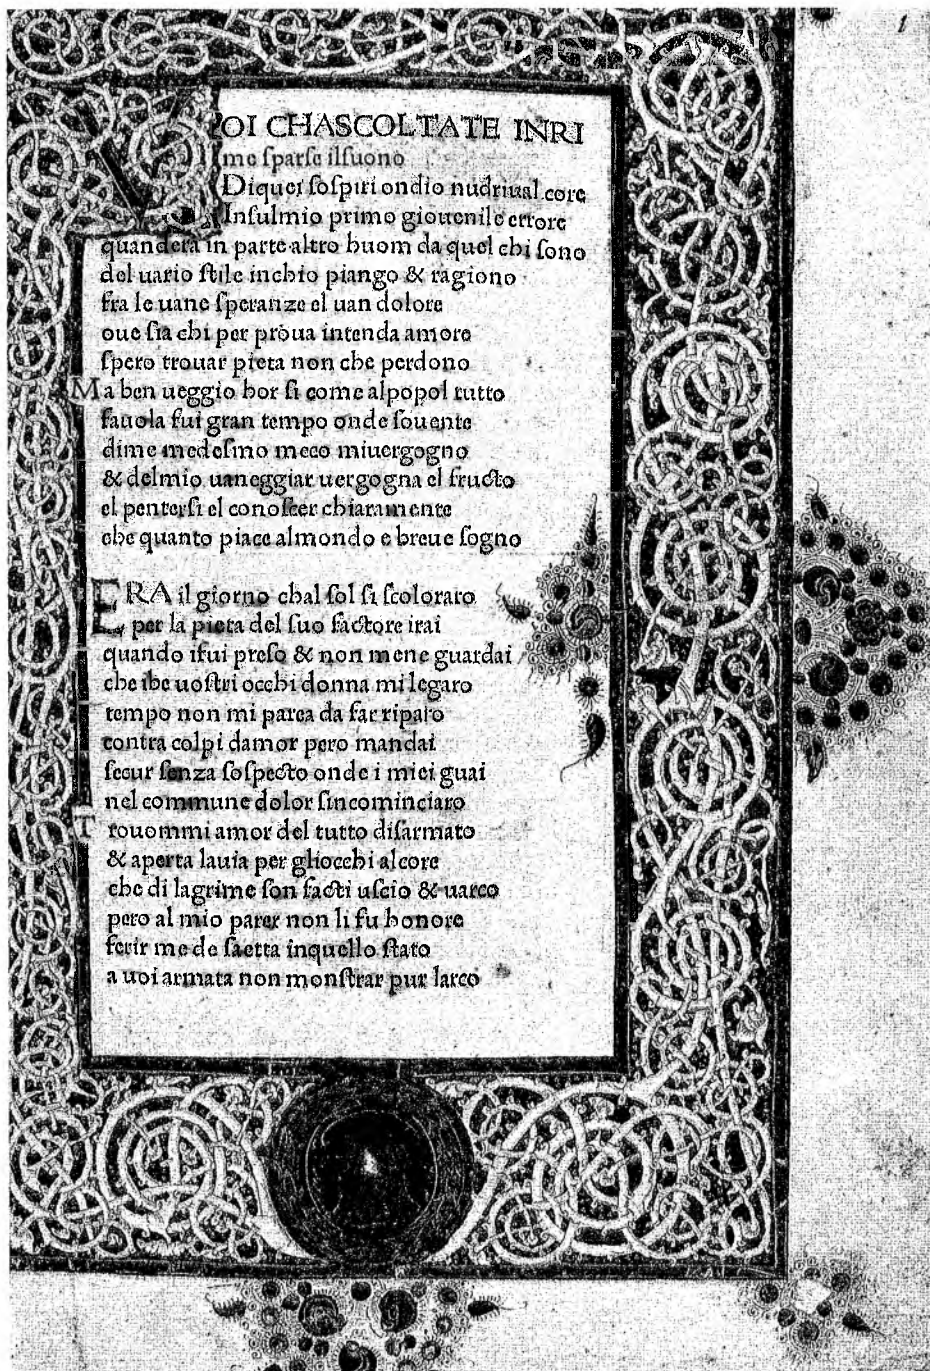 1
VOI CHASCOLTATE INRI
me ſparſe ilſuono
Diquei ſoſpiri ondio nudriual core
Inſulmio primo giouenile errore
quandera in parte altro huom da quel chi ſono
del uario ſtile inchio piango & ragiono
fra le uane ſperanze el uan dolore
oue ſia chi per pròua intenda amore
ſpero trouar pieta non che perdono
Ma ben ueggio hor ſi come alpopol tutto
fauola fui gran tempo onde ſouente
dime medeſmo meco miuergogno
& delmio uaneggiar uergogna el fructo
el penterſi el conoſcer chiaramente
che quanto piace almondo e breue ſogno
ERA il giorno chal ſol ſi ſcoloraro
per la pieta del ſuo factore irai
quando ifui preſo & non mene guardai
che ibe uoſtri occhi donna mi legaro
tempo non mi parea da far riparo
contra colpi damor pero mandai
ſecur ſenza ſoſpecto onde i miei guai
nel commune dolor ſincominciaro
Trouommi amor del tutto diſarmato
& aperta lauia per gliocchi alcore
che di lagrime ſon facti uſcio & uarco
pero al mio parer non li fu honore
ferir me de ſaetta inquello ſtato
a uoi armata non monſtrar pur larco